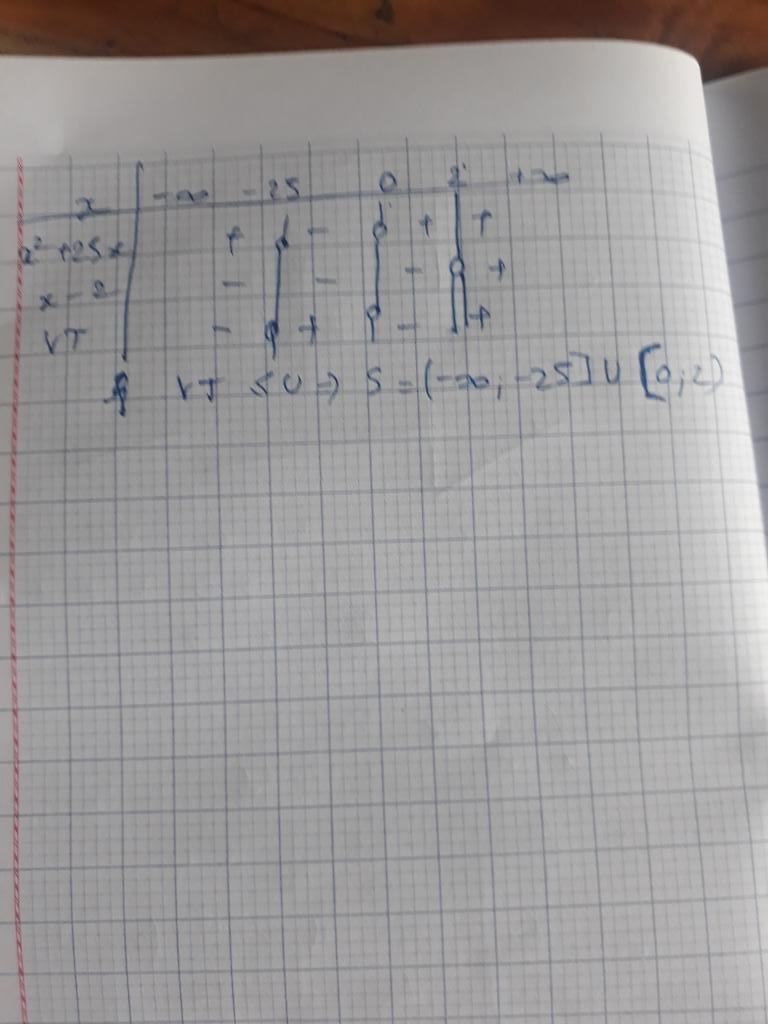 x -∞ -25 0 2 +∞
x² + 25x + - + +
x - 2 - - - +
VT - + - +
VT ≤ 0 → S = (-∞; -25] ∪ [0; 2)